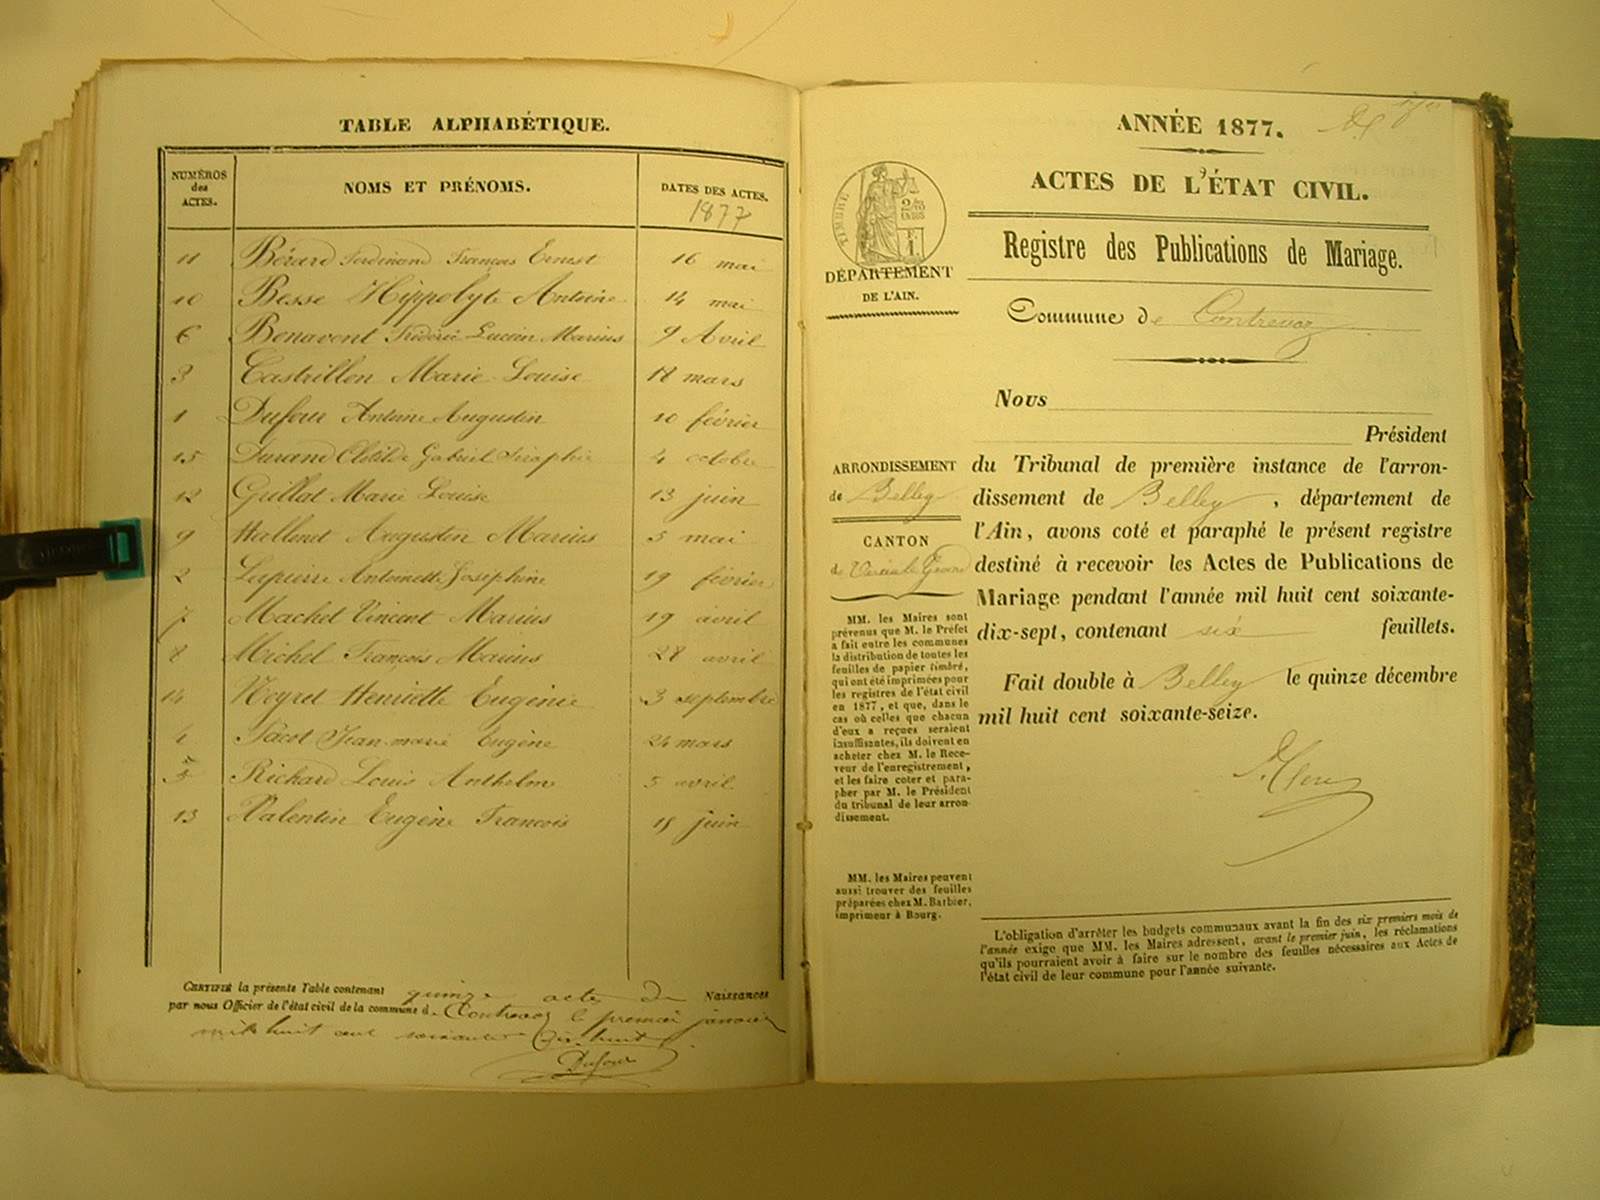 TABLE ALPHABÉTIQUE.
NUMÉROS des ACTES. NOMS ET PRÉNOMS. DATES DES ACTES.
1877
11 Bérard Ferdinand François Ernest 16 mai
10 Besse Hippolyte Antoine 14 mai
6 Benavent Frédéric Lucien Marius 9 Avril
3 Castrillon Marie Louise 18 mars
1 Dufour Antoine Augustin 10 février
15 Durand Clotilde Gabriel Séraphie 4 octobre
12 Grillat Marie Louise 13 juin
9 Augustin Marius 5 mai
2 Lapierre Antoinette Joséphine 19 février
7 Machet Vincent Marius 19 avril
8 Michel François Marius 28 avril
14 Neyret Henriette Eugénie 3 septembre
4 Pacot Jean marie Eugène 24 mars
5 Richard Louis Anthelm 5 avril
13 Valentin Eugène François 18 juin
CERTIFIÉ la présente Table contenant quinze actes de Naissances
par nous Officier de l'état civil de la commune de Contrevoz le premier janvier
mil huit cent soixante dix huit
Dufour
ANNÉE 1877.
ACTES DE L'ÉTAT CIVIL.
TIMBRE
DÉPARTEMENT
DE L'AIN.
Registre des Publications de Mariage.
Commune de Contrevoz
Nous
Président
du Tribunal de première instance de l'arron-
dissement de Belley, département de
l'Ain, avons coté et paraphé le présent registre
destiné à recevoir les Actes de Publications de
Mariage pendant l'année mil huit cent soixante-
dix-sept, contenant six feuillets.
Fait double à Belley le quinze décembre
mil huit cent soixante-seize.
ARRONDISSEMENT
de Belley
CANTON
de Virieu le Grand
MM. les Maires sont
prévenus que M. le Préfet
a fait entre les communes
la distribution de toutes les
feuilles de papier timbré,
qui ont été imprimées pour
les registres de l'état civil
en 1877, et que, dans le
cas où celles que chacun
d'eux a reçues seraient
insuffisantes, ils doivent en
acheter chez M. le Rece-
veur de l'enregistrement,
et les faire coter et para-
pher par M. le Président
du tribunal de leur arron-
dissement.
MM. les Maires peuvent
aussi trouver des feuilles
préparées chez M. Barbier,
imprimeur à Bourg.
L'obligation d'arrêter les budgets communaux avant la fin des six premiers mois de
l'année exige que MM. les Maires adressent, avant le premier juin, les réclamations
qu'ils pourraient avoir à faire sur le nombre des feuilles nécessaires aux Actes de
l'état civil de leur commune pour l'année suivante.